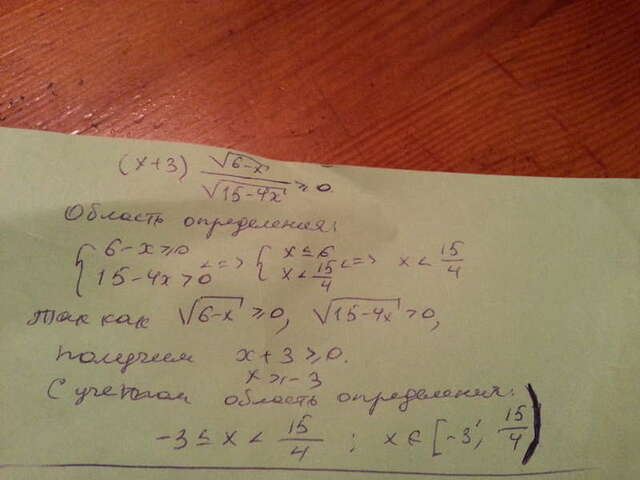 (x+3) √(6-x) / √(15-4x) ≥ 0.
Область определения:
{ 6-x ≥ 0 <=> { x ≤ 6 <=> x < 15/4
15-4x > 0 x < 15/4
Так как √(6-x) ≥ 0, √(15-4x) > 0,
получим x+3 ≥ 0.
x ≥ -3
С учетом область определения:
-3 ≤ x < 15/4 ; x ∈ [-3; 15/4)